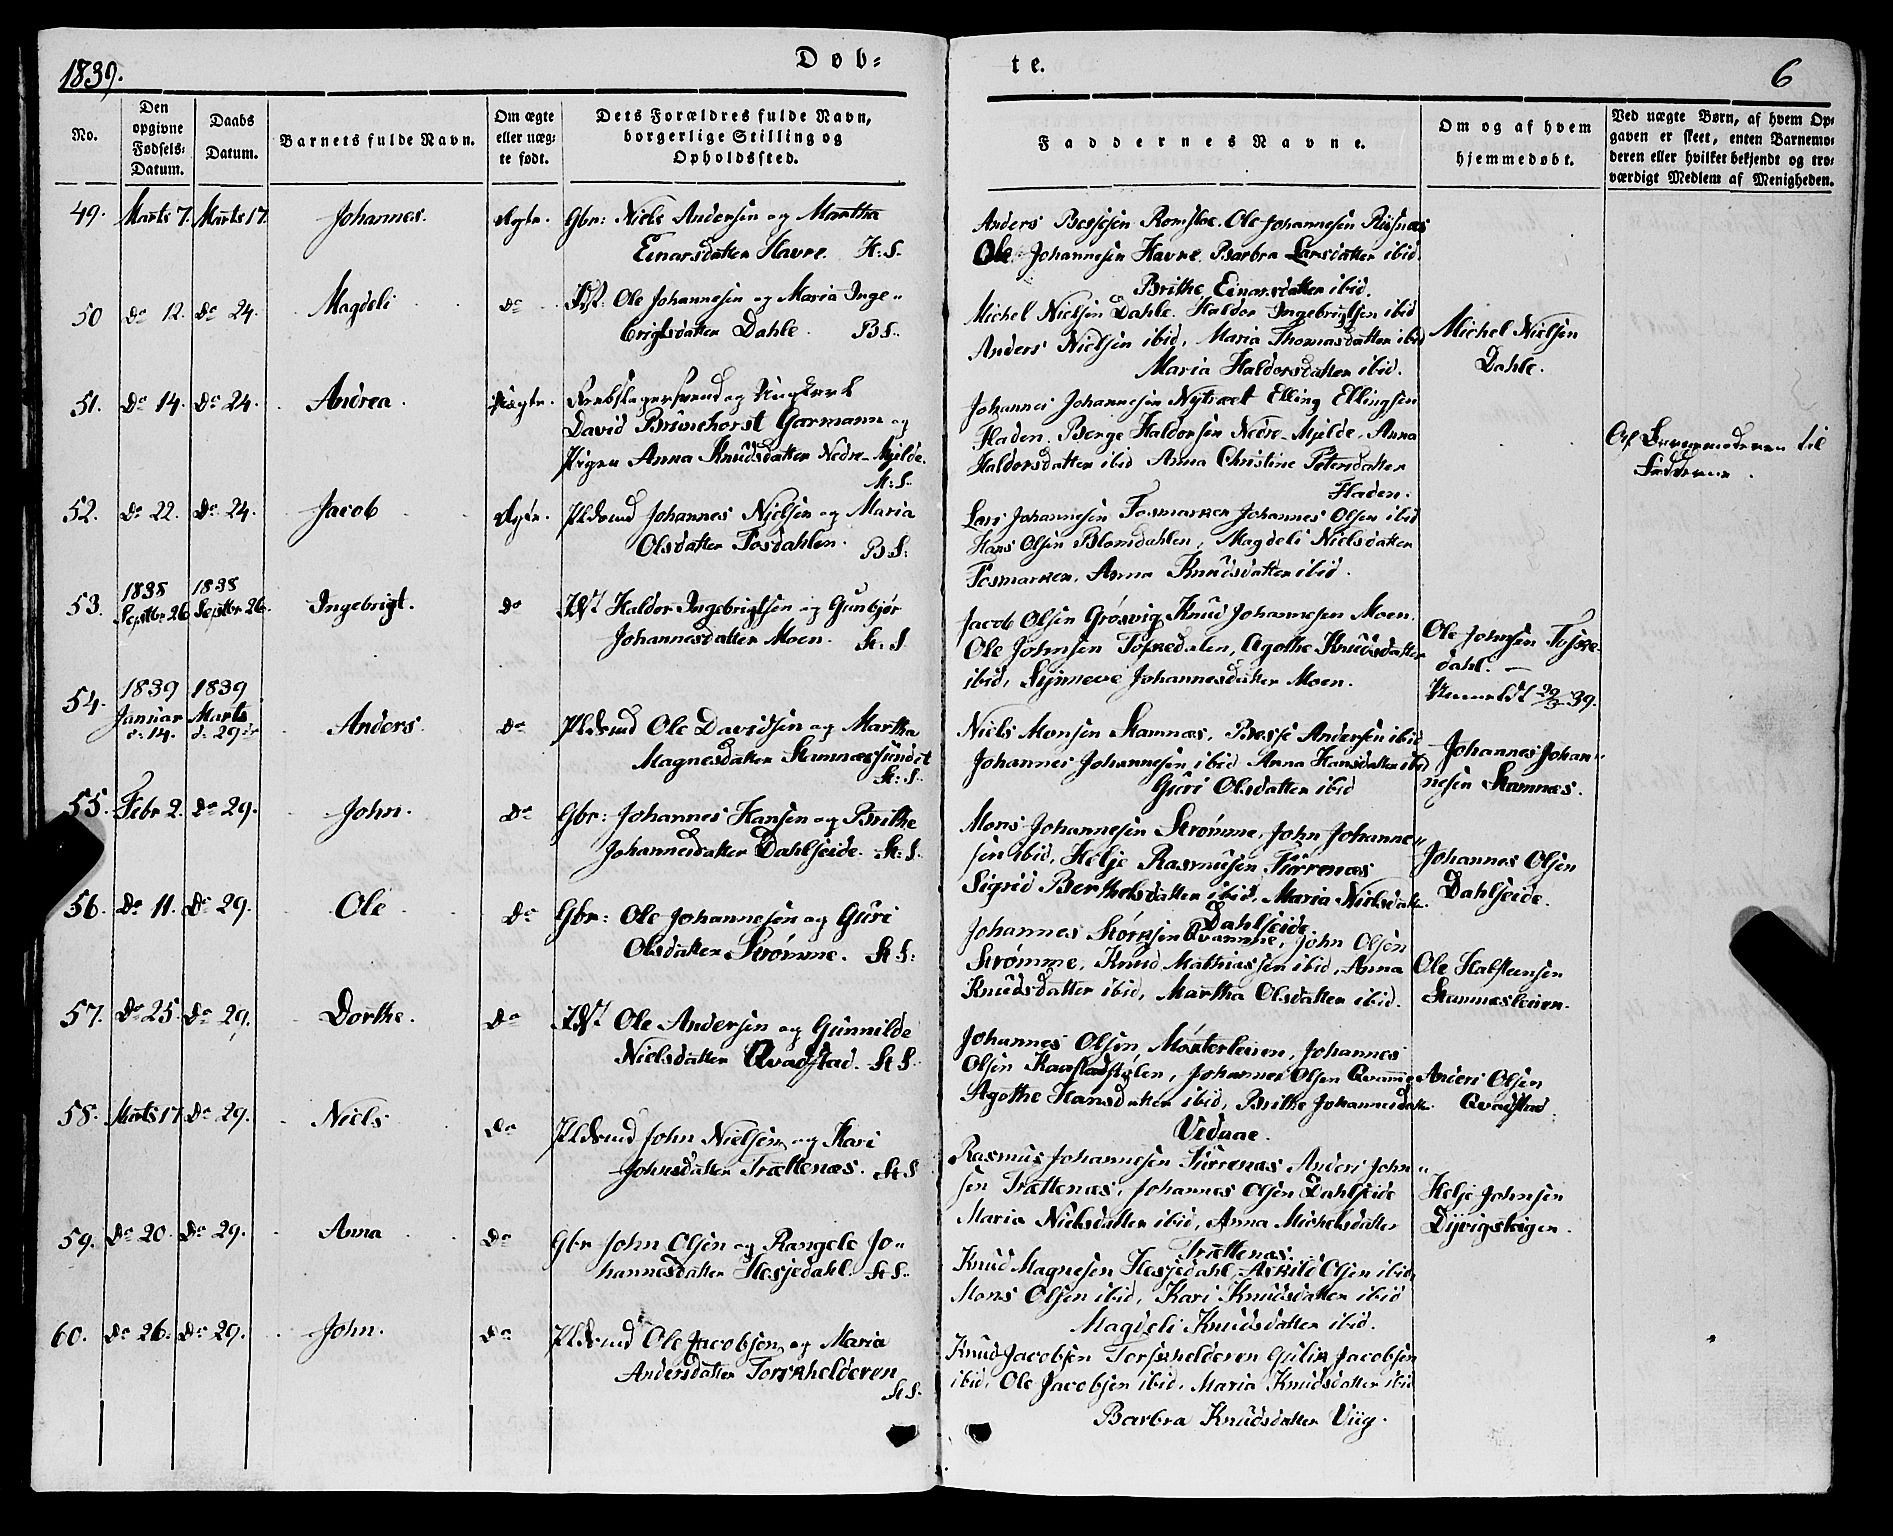 1839.
Døb-
te.
6
No.
Den opgivne Fødsels-Datum.
Daabs Datum.
Barnets fulde Navn.
Om ægte eller uæg-te født.
Dets Forældres fulde Navn, borgerlige Stilling og Opholdssted.
Faddernes Navne.
Om og af hvem hjemmedøbt.
Ved uægte Børn, af hvem Op-gaven er skeet, enten Barnemo-deren eller hvilket bekjendt og tro-værdigt Medlem af Menigheden.
49. Marts 7. Marts 17. Johannes. Ægte. Gbr: Niels Andersen og Martha
Einarsdatter Havre. H:S.
Anders Bessesen Romsloe. Ole Johannesen Riisnæs
Ole Johannesen Havre, Barbra Larsdatter ibid.
Brithe Einarsdatter ibid.
50 do 12. do 24. Magdeli do Ole Johannesen og Maria Inge-
brigtsdatter Dahle. B.S.
Michel Nielsen Dahle. Haldor Ingebrigtsen ibid
Anders Nielsen ibid, Maria Thomasdatter ibid
Maria Haldorsdatter ibid.
Michel Nielsen
Dahle.
51. do 14. do 24. Andrea. Uægte. Reebslagersvend og Ungkarl
David Brunchorst Garmann og
Pigen Anna Knudsdatter Nedre-Mjelde.
H:S.
Johannes Johannesen Nytræet Elling Ellingsen
Fladen. Berge Haldorsen Nedre-Mjelde, Anna
Haldorsdatter ibid Anna Christine Petersdatter
Fladen.
Af Barnemoderen til
52. do 22. do 24. Jacob Ægte. Pldsmd Johannes Njelsen og Maria
Olsdatter Fosdahlen. B:S:
Lars Johannesen Fosmarken Johannes Olsen ibid
Hans Olsen Blomdahlen, Magdeli Nielsdatter
Fosmarken, Anna Knudsdatter ibid.
53. 1838 Septbr 26. 1838 Septbr 26. Ingebrigt. do Haldor Ingebrigtsen og Gunbjør
Johannesdatter Moen. St:S
Jacob Olsen Grøsvig, Knud Johannesen Moen.
Ole Johnsen Toskedalen, Agothe Knudsdatter
ibid, Synneve Johannesdatter Moen.
Ole Johnsen Toske-
dahl. —
54. 1839 Januar d: 14. 1839 Marts d: 29de Anders. do Pldsmd Ole Davidsen og Martha
Magnesdatter Stamnæssundet
St:S.
Niels Monsen Stamnæs, Besse Andersen ibid
Johannes Johannesen ibid Anna Hansdatter ibid
Guri Olsdatter ibid
Johannes Johan-
nesen Stamnæs.
55. Febr 2. do 29. John. do Gbr: Johannes Hansen og Brithe
Johannesdatter Dahlseide. St:S.
Mons Johannesen Strømme, John Johanne-
sen ibid, Helje Rasmusen Türrenæs
Sigrid Berthelsdatter ibid, Maria Nielsdatter
Dahlseide.
Johannes Olsen
Dahlseide.
56. do 11. do 29. Ole do Gbr: Ole Johannesen og Guri
Olsdatter Strømme. St S:
Johannes Qvamme, John Olsen
Strømme, Knud Mathiassen ibid, Anna
Knudsdatter ibid, Martha Olsdatter ibid.
Ole Halsteinsen
Stamnesleiren.
57. do 25. do 29. Dorthe. do Ole Andersen og Gunnilde
Nielsdatter Qvadstad. St S.
Johannes Olsen Mosterleiren, Johannes
Olsen Johannes Olsen Qvamme
Agothe Hansdatter ibid, Brithe Johannesdatter
Vidnae.
Anders Olsen
Qvadstad.
58. Marts 17 do 29. Niels do Pldsmd John Nielsen og Kari
Johnsdatter Trættenæs. St S
Rasmus Johannesen Türrenæs Anders John-
sen Trættenæs, Johannes Olsen Dahlseide
Maria Nielsdatter ibid, Anna Michelsdatter
Trættenæs.
Helje Johnsen
Dyvigsteigen.
59. do 20. do 29. Anna do Gbr John Olsen og Rangele Jo-
hannesdatter Hesjedahl. St S.
Knud Magnesen Hesjedahl, Askild Olsen ibid,
Mons Olsen ibid, Kari Knudsdatter ibid
Magdeli Knudsdatter ibid.
60. do 26. do 29. John. do Pldsmd Ole Jacobsen og Maria
Andersdatter Torskhelderen
St S.
Knud Jacobsen Torskhelderen Gulik Jacobsen
ibid, Ole Jacobsen ibid. Maria Knudsdatter ibid
Barbra Knudsdatter Viig.